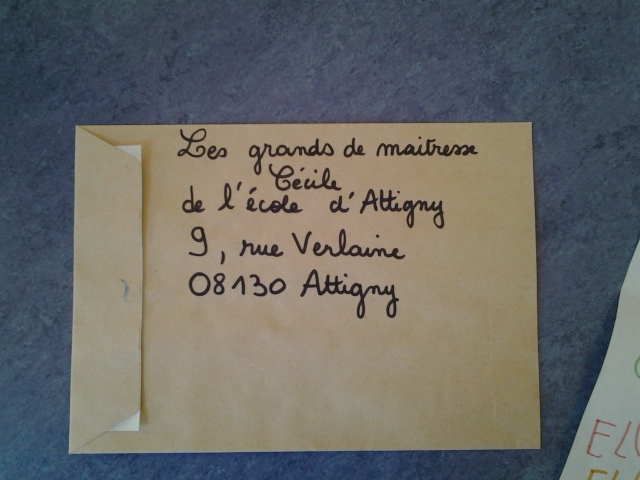 Les grands de maitresse
Cécile
de l'école d'Attigny
9, rue Verlaine
08130 Attigny
ELU